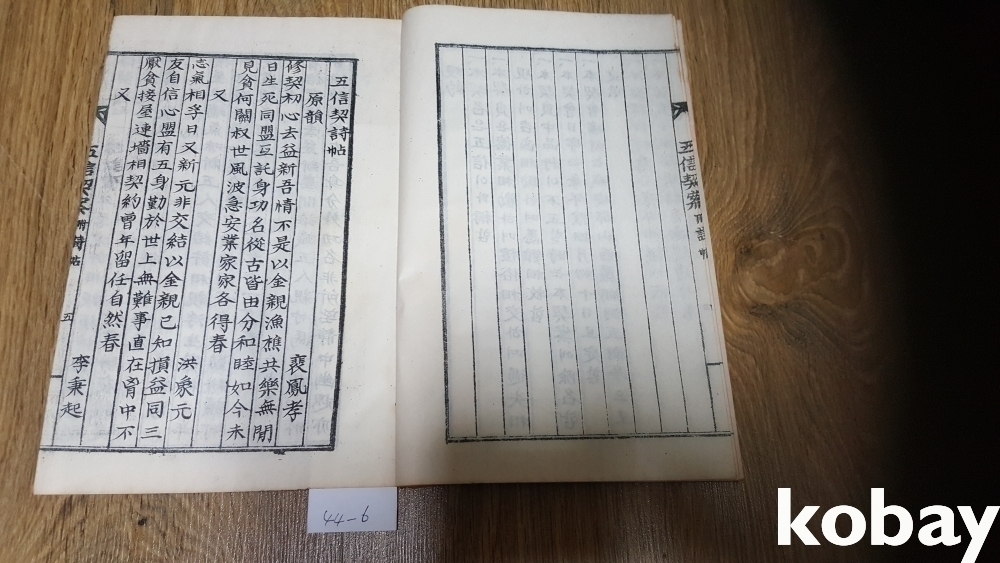 五信契案
五信契詩帖
原韻 裵鳳孝
修契初心去益新吾情不是以金親漁樵共樂無閒
日生死同盟互託身功名從古皆由分和睦如今未
見貧何關叔世風波急安業家家各得春
又 洪象元
志氣相孚日又新元非交結以金親已知損益同三
友自信心盟有五身勤於世上無難事直在胷中不
厭貧接屋連墻相契約曾年留任自然春
又 李秉起
五信契案 附詩帖 五
44-6
kobay